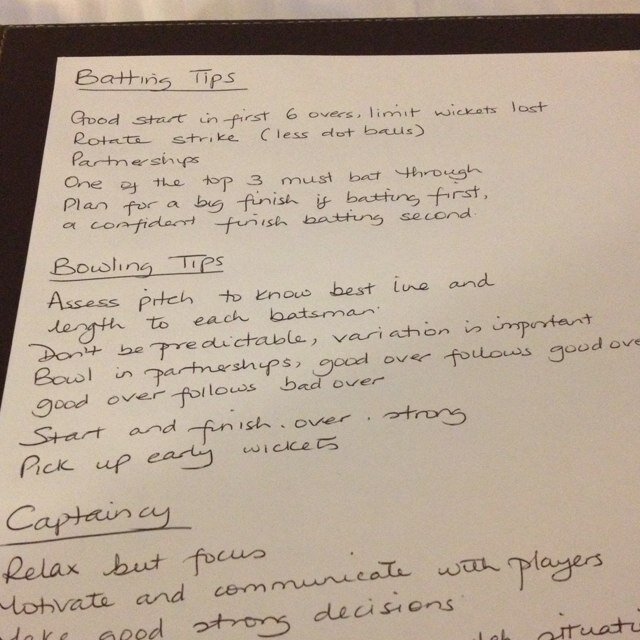 Batting Tips
Good start in first 6 overs, limit wickets lost
Rotate strike (less dot balls)
Partnerships
One of the top 3 must bat through
Plan for a big finish if batting first,
a confident finish batting second.
Bowling Tips
Assess pitch to know best line and
length to each batsman.
Don't be predictable, variation is important
Bowl in partnerships, good over follows good ove
good over follows bad over
Start and finish . over . strong
Pick up early wickets
Captaincy
Relax but focus
Motivate and communicate with players
Make good strong decisions
situati